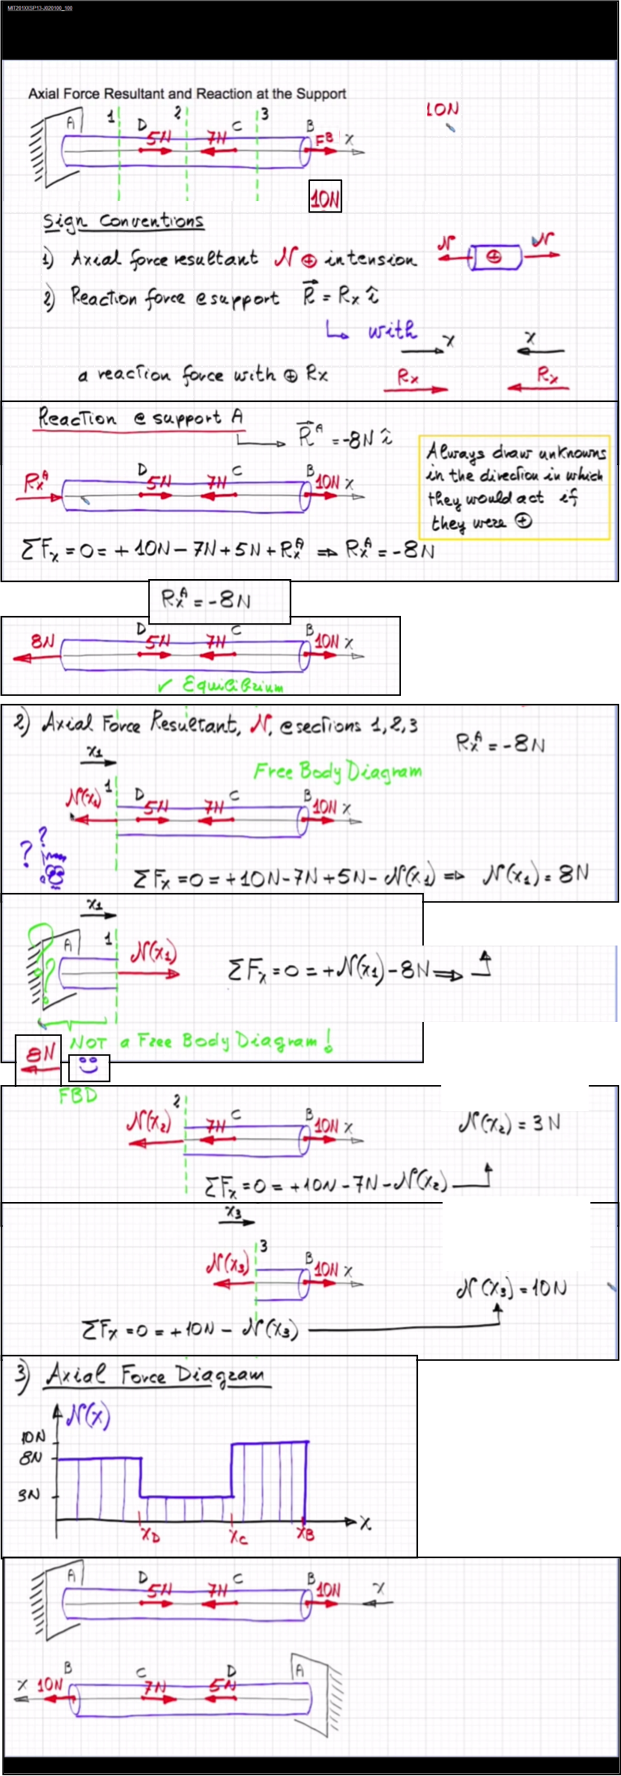 MIT201XXSP13-J020100_100
Axial Force Resultant and Reaction at the Support
10N
A 1 D 2 C 3 B
5N 7N FB x
10N
Sign Conventions
1) Axial force resultant N ⊕ in tension N ⊕ N
2) Reaction force @ support R⃗ = Rx î
↳ with x x
a reaction force with ⊕ Rx Rx Rx
Reaction @ support A
R⃗ᴬ = -8N î
Always draw unknowns
in the direction in which
they would act if
they were ⊕
D C B
RxA 5N 7N 10N x
ΣFx = 0 = + 10N - 7N + 5N + RxA ⇒ RxA = -8N
RxA = -8N
D C B
8N 5N 7N 10N x
✓ Equilibrium
2) Axial Force Resultant, N, @ sections 1, 2, 3
RxA = -8N
x1
Free Body Diagram
N(x1) 1 D C B
5N 7N 10N x
? ?
ΣFx = 0 = +10N - 7N + 5N - N(x1) ⇒ N(x1) = 8N
x1
? A 1 N(x1)
?
ΣFx = 0 = +N(x1) - 8N ⇒
NOT a Free Body Diagram!
8N
FBD
2 C B
N(x2) 7N 10N x
N(x2) = 3N
ΣFx = 0 = +10N - 7N - N(x2)
x3
3 B
N(x3) 10N x
N(x3) = 10N
ΣFx = 0 = +10N - N(x3)
3) Axial Force Diagram
N(x)
10N
8N
3N
x
xD xC xB
A D C B
5N 7N 10N x
B C D A
x 10N 7N 5N